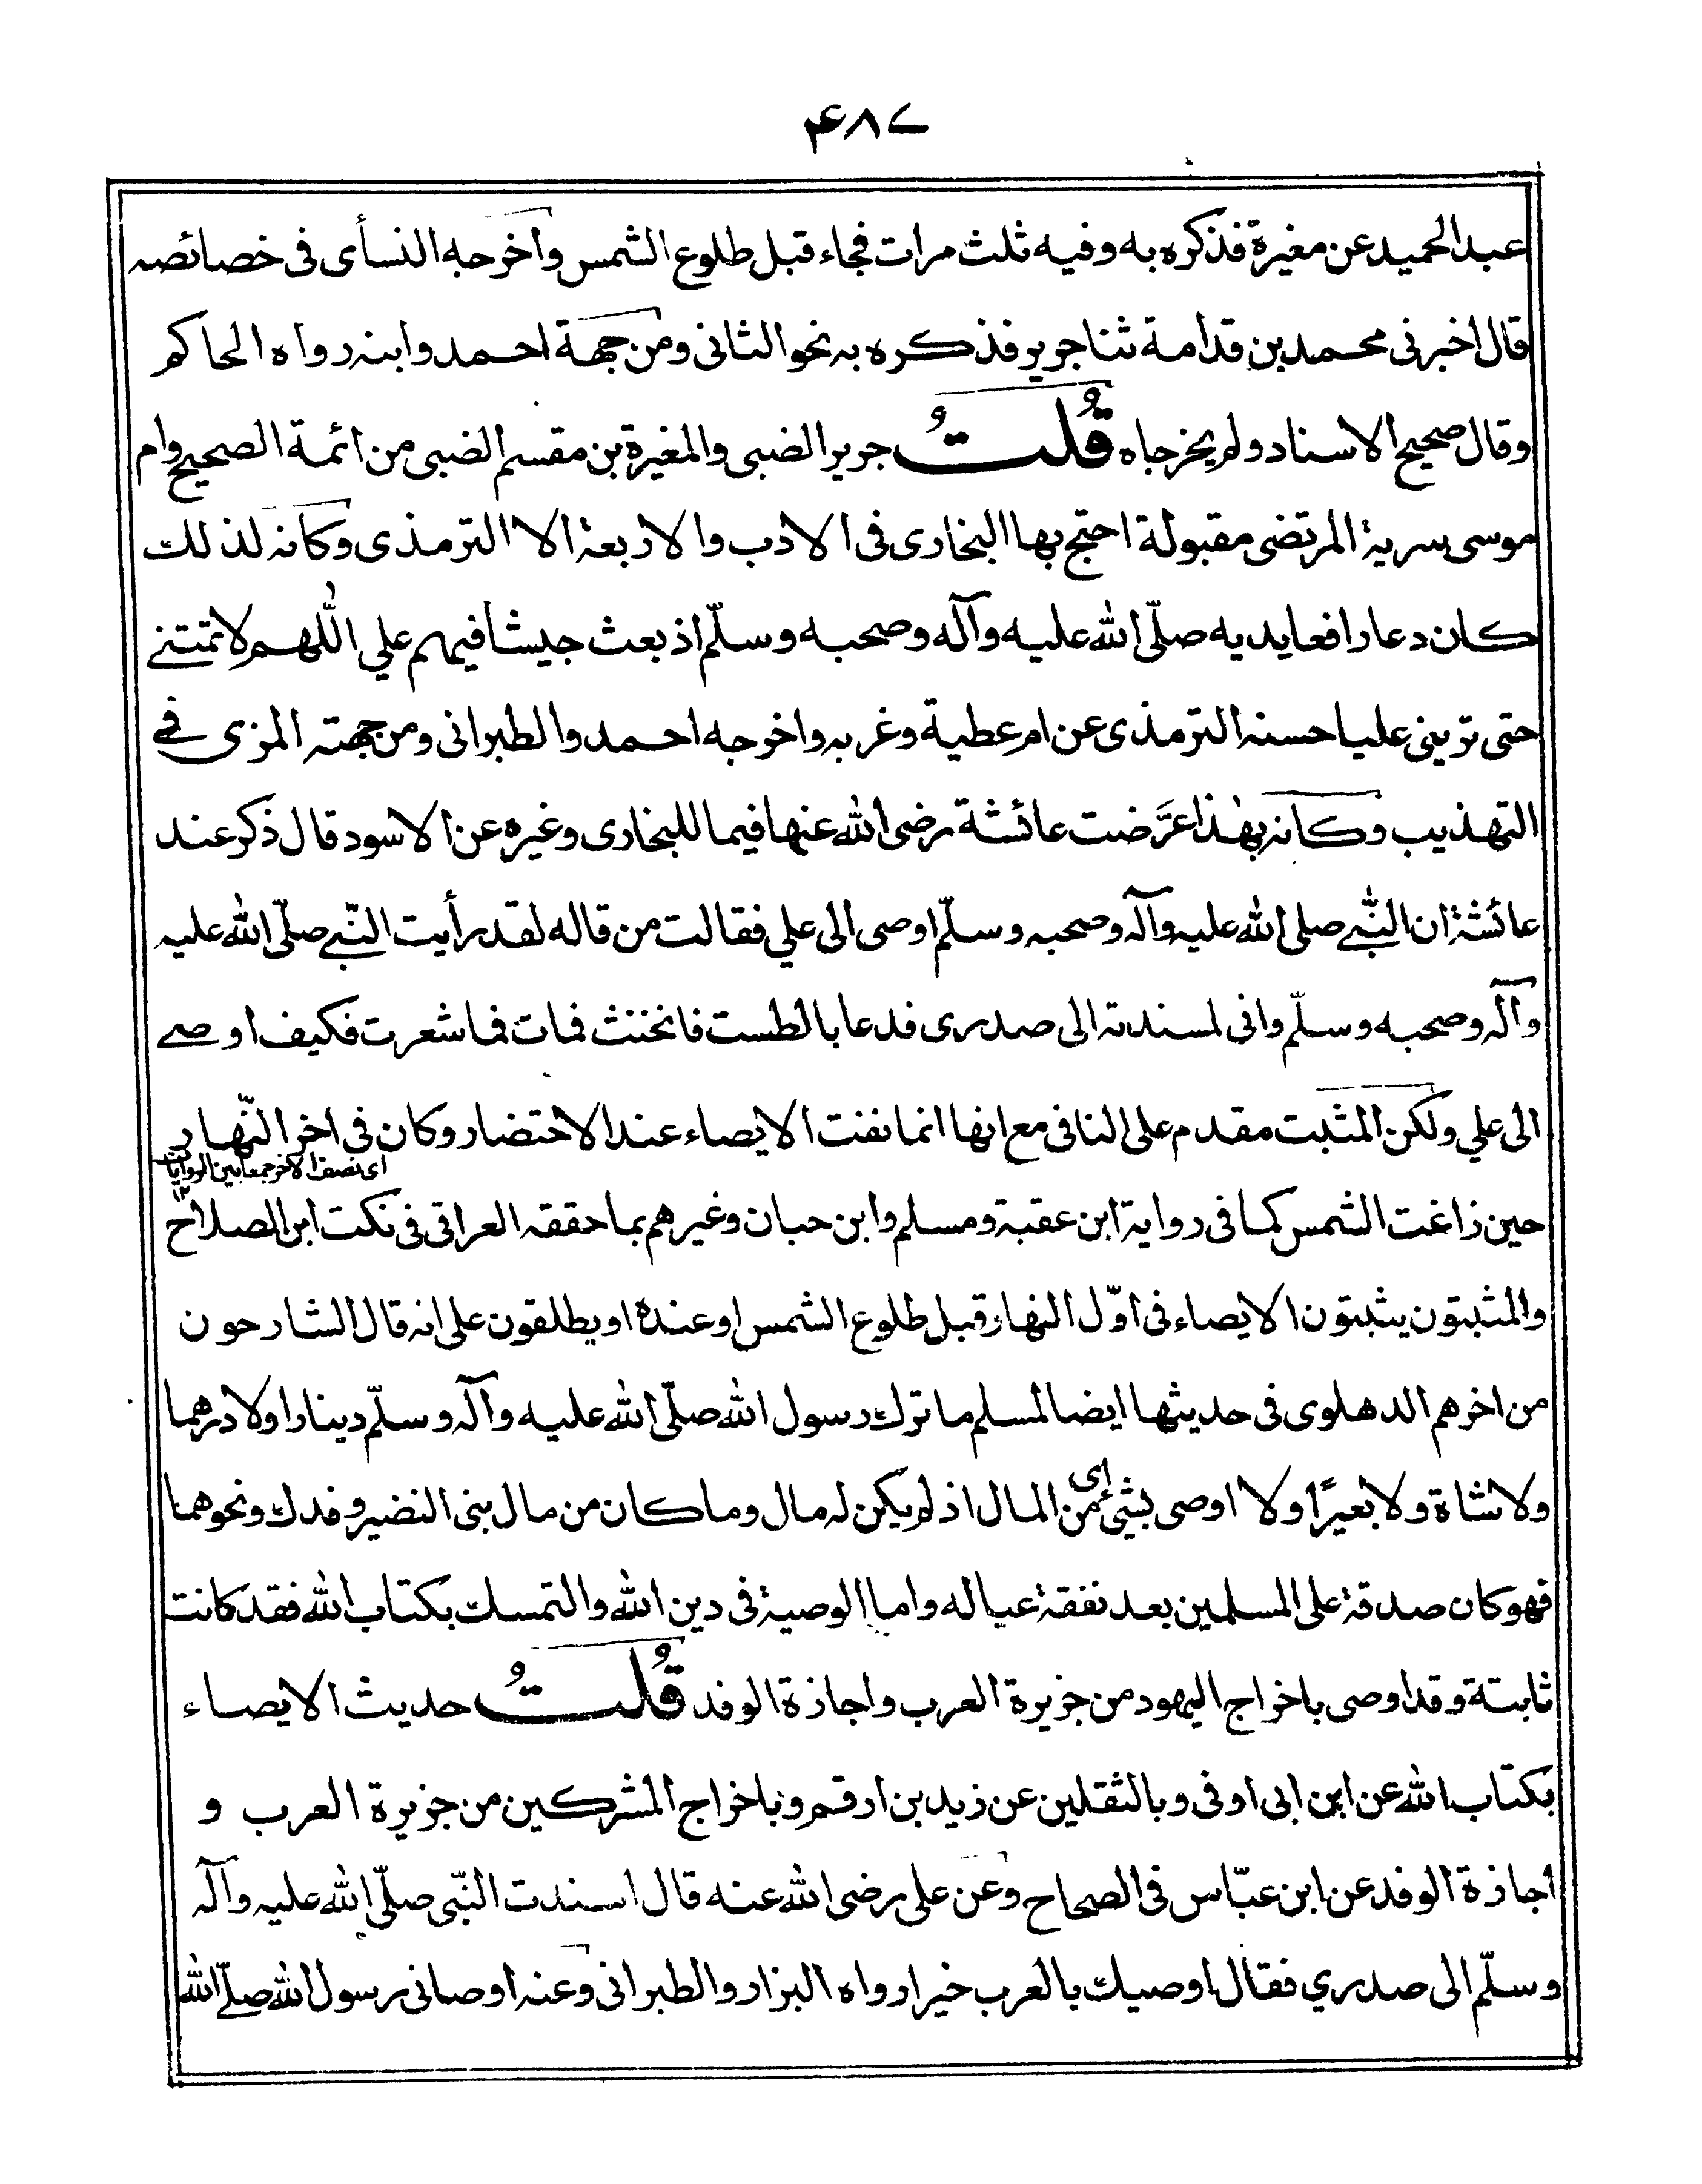 ۴۸۷
عبد الحميد عن مغيرة فذكره به وفيه ثلث مرات فجاء قبل طلوع الشمس واخرجه النسأى فى خصائصه
قال اخبرنى محمد بن قدامة ثنا جرير فذكره به نحو الثانى ومن جهة احمد وابنه رواه الحاكم
وقال صحيح الاسناد ولم يخرجاه قُلتُ جرير الضبى والمغيرة بن مقسم الضبى من ائمة الصحيح وام
موسى سرية المرتضى مقبولة احتج بها البخارى فى الادب والاربعة الا الترمذى وكانه لذلك
كان دعا رافعا يديه صلّى الله عليه وآله وصحبه وسلّم اذ بعث جيشا فيهم علي اللّهم لا تمتنے
حتى ترينى عليا حسنه الترمذى عن ام عطية وغربه واخرجه احمد والطبرانى ومن جهته المزى فے
التهذيب وكانه بهذا عرَّضت عائشة رضى الله عنها فيما للبخارى وغيره عن الاسود قال ذكر عند
عائشة ان النّبے صلى الله عليه وآله وصحبه وسلّم اوصى الى علي فقالت من قاله لقد رأيت النّبے صلّى الله عليه
وآله وصحبه وسلّم وانى لمسندته الى صدرى فدعا بالطست فانخنث فمات فما شعرت فكيف اوصے
الى علي ولكن المثبت مقدم على النافى مع انها انما نفت الايصاء عند الاحتضار وكان فى اخر النّهار
اى نصف الاخر جمعا بين الروايات ١٢
حين زاغت الشمس كما فى رواية ابن عقبة ومسلم وابن حبان وغيرهم بما حققه العراقى فى نكت ابن الصلاح
والمثبتون يثبتون الايصاء فى اوّل النهار قبل طلوع الشمس او عنده او يطلقون على انه قال الشارحون
من اخرهم الدهلوى فى حديثها ايضا لمسلم ما ترك رسول الله صلّى الله عليه وآله وسلّم دينارا ولا درهما
ولا شاة ولا بعيرًا ولا اوصى بشئ اى من المال اذ لم يكن له مال وما كان من مال بنى النضير وفدك ونحوهما
فهو كان صدقة على المسلمين بعد نفقة عياله واما الوصية فى دين الله والتمسك بكتاب الله فقد كانت
ثابتة وقد اوصى باخراج اليهود من جزيرة العرب واجازة الوفد قُلتُ حديث الايصاء
بكتاب الله عن ابن ابى اوفى وبالثقلين عن زيد بن ارقم وباخراج المشركين من جزيرة العرب و
اجازة الوفد عن ابن عبّاس فى الصحاح وعن على رضى الله عنه قال اسندت النّبى صلّى الله عليه وآله
وسلّم الى صدري فقال اوصيك بالعرب خيرا رواه البزار والطبرانى وعنه اوصانى رسول الله صلّى الله